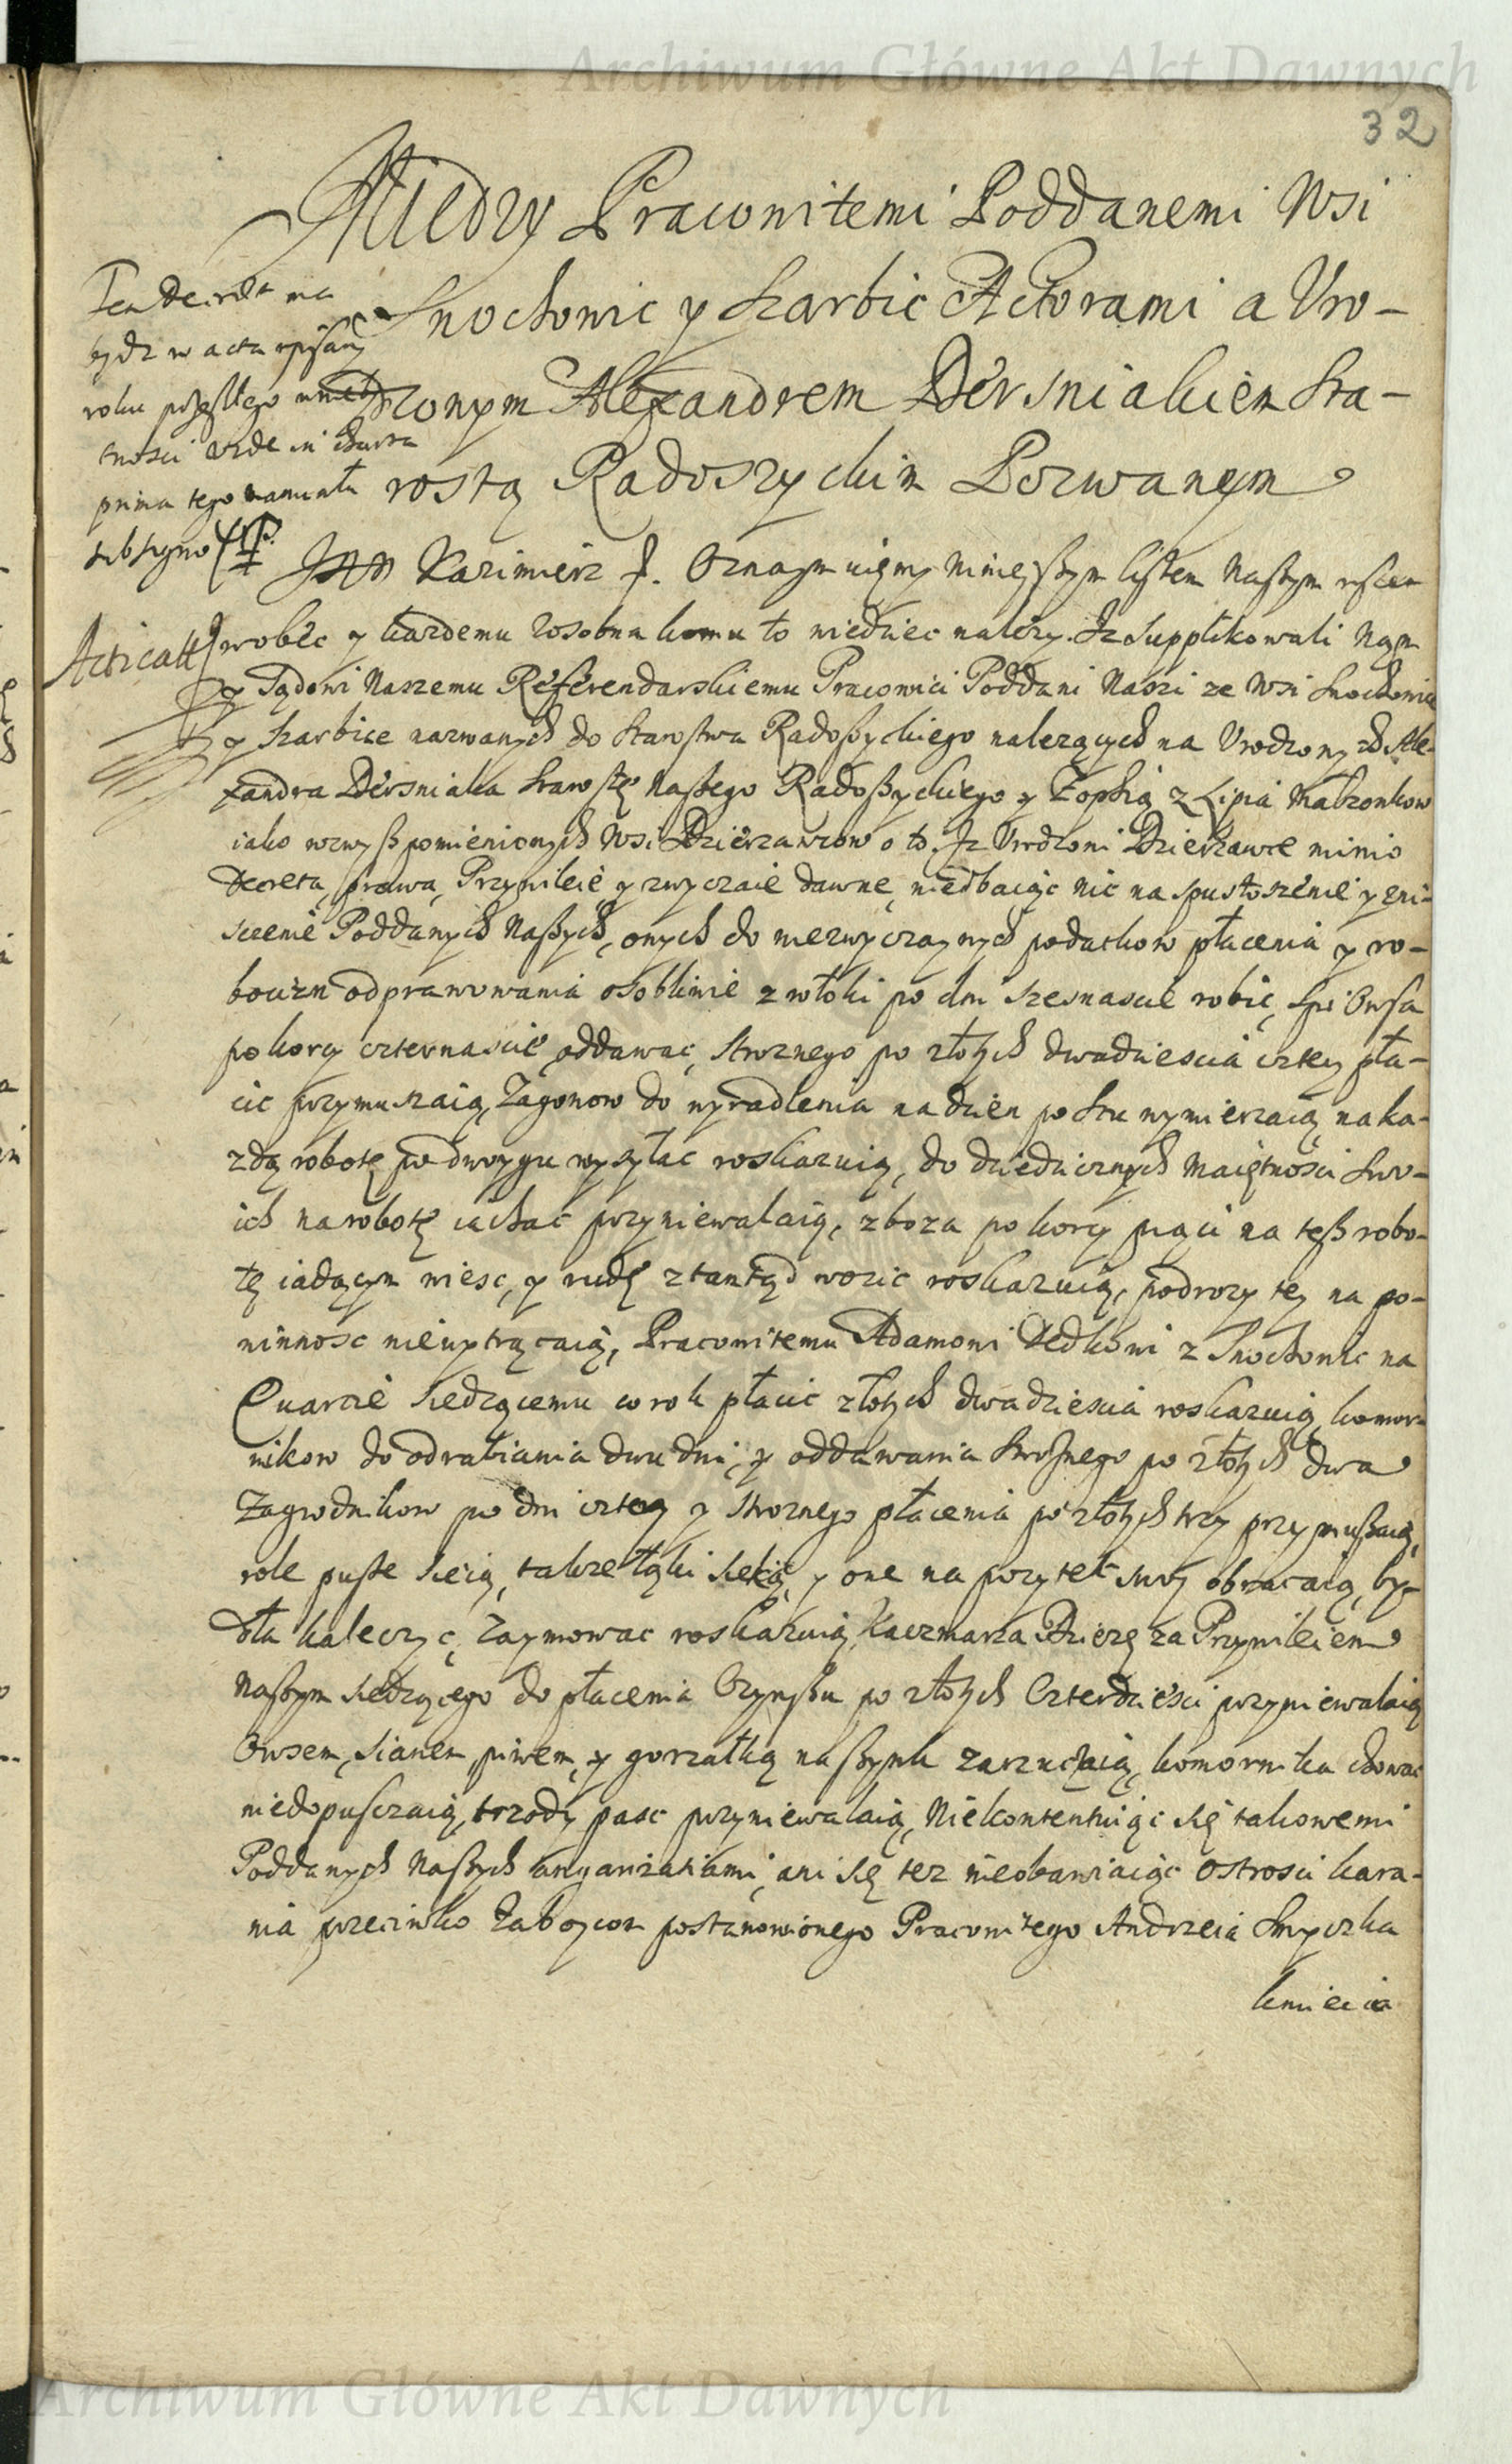 Archiwum Główne Akt Dawnych
32
Między Pracowitemi Poddanemi Wsi
Snochowic y Skarbic Actorami a Vro-
dzonym Alexandrem Dersniakiem Sta-
rostą Radoszyckim Pozwanym
Ten decret ma
bydz w acta wpisany
roku przeszłego
tnosci vide in charta
prima tego
sub signo
Jan Kazimierz f. Oznaymuięmy ninieyszym listem Naszym wszem
Acticatt
wobec y kazdemu zosobna komu to wiedziec nalezy. Iz supplikowali Nąm
y Sądowi Naszemu Referendarskiemu Pracowici Poddani Naszi ze Wsi Snochowic
y Skarbice nazwanych do Starostwa Radoszyckiego nalezących na Vrodzonych Ale-
xandra Dersniaka Starostę Naszego Radoszyckiego y Zophią z Lipia Małzonkow
iako wzwysz pomienionych Wsi Dzierzawcow o to. Iz Vrodzoni Dzierzawce mimo
Decreta, prawa, Przywileie y zwyczaie dawne, niedbaiąc nic na spustoszenie y zni-
sczenie Poddanych Naszych, onych do niezwyczaynych podatkow płacenia y ro-
bocizn odprawowania osobliwie z włoki po dni szesnascie robic, Spi Owsa
po korcy czternascie oddawac, Stroznego po złotych dwadziescia cztery pła-
cic przymuszaią, Zagonow do wyradlenia na dzien po Stu wymierzaią, na ka-
zdą robotę po dwoygu wysyłac roskazuią, do dziedzicznych maiętnosci Swo-
ich na robotę iachac przyniewalaią, zboza po korcy pięci na tesz robo-
tę iadącym niesc, y rudę ztamtąd wozic roskazuią, podrozy tey na po-
winnosc niewytrącaią, Pracowitemu Adamowi Dedkowi z Snochowic na
Quarcie siedzącemu co rok płacic złotych dwadziescia roskazuią, komor-
nikow do odrabiania dwu dni, y oddawania Strosznego po złotych dwa
Zagrodnikow po dni cztery y stroznego płacenia po złotych trzy przymuszaią,
role puste sieią, takze łąki sieką, y one na pozytek swoy obracaią, by-
dła kaleczyc, zaymowac roskazuią, Kaczmarza Dzierę za Przywileiem
Naszym siedzącego do płacenia Czynszu po złotych Czterdziesci przyniewalaią
Owsem, sianem, piwem, y gorzałką na szynk zarzucaią, komornika chowac
niedopusczaią, trzody pasc przyniewalaią, Niekontentuiąc się takowemi
Poddanych Naszych angariatiami, ani się tez nieobawiaiąc ostrosci kara-
nia przeciwko Zaboycom postanowionego Pracowitego Andrzeia Smyczka
kmiecia
Archiwum Główne Akt Dawnych